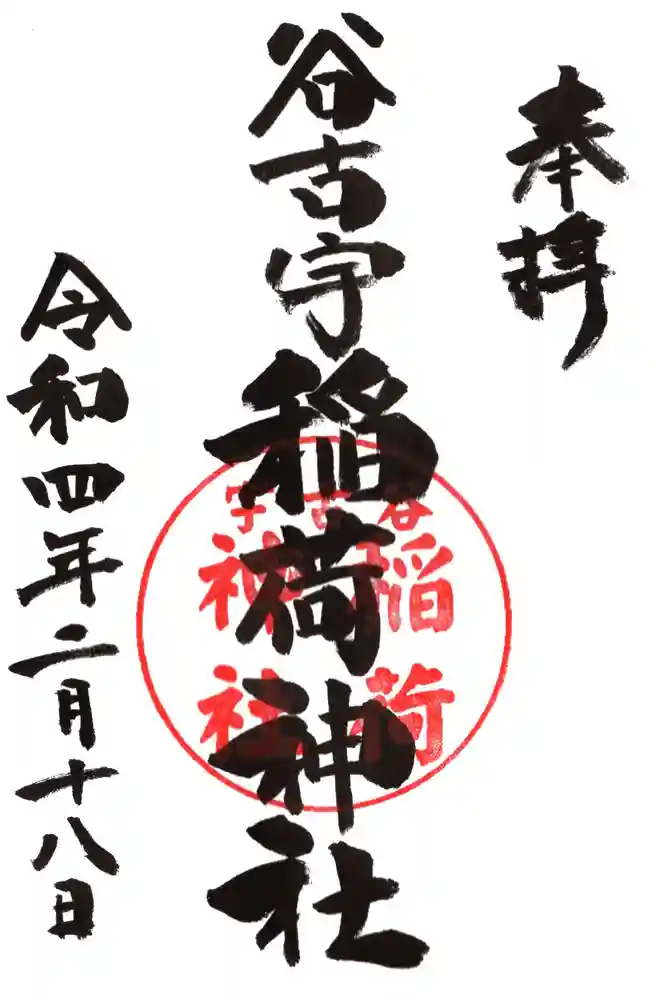 奉拝
谷古宇稲荷神社
谷古宇
稲荷
神社
令和四年二月十八日